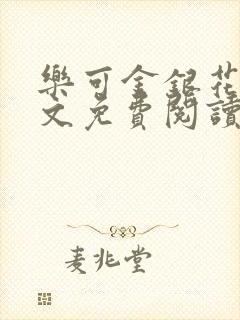 樂可金銀花
文免費閱讀
麦兆堂